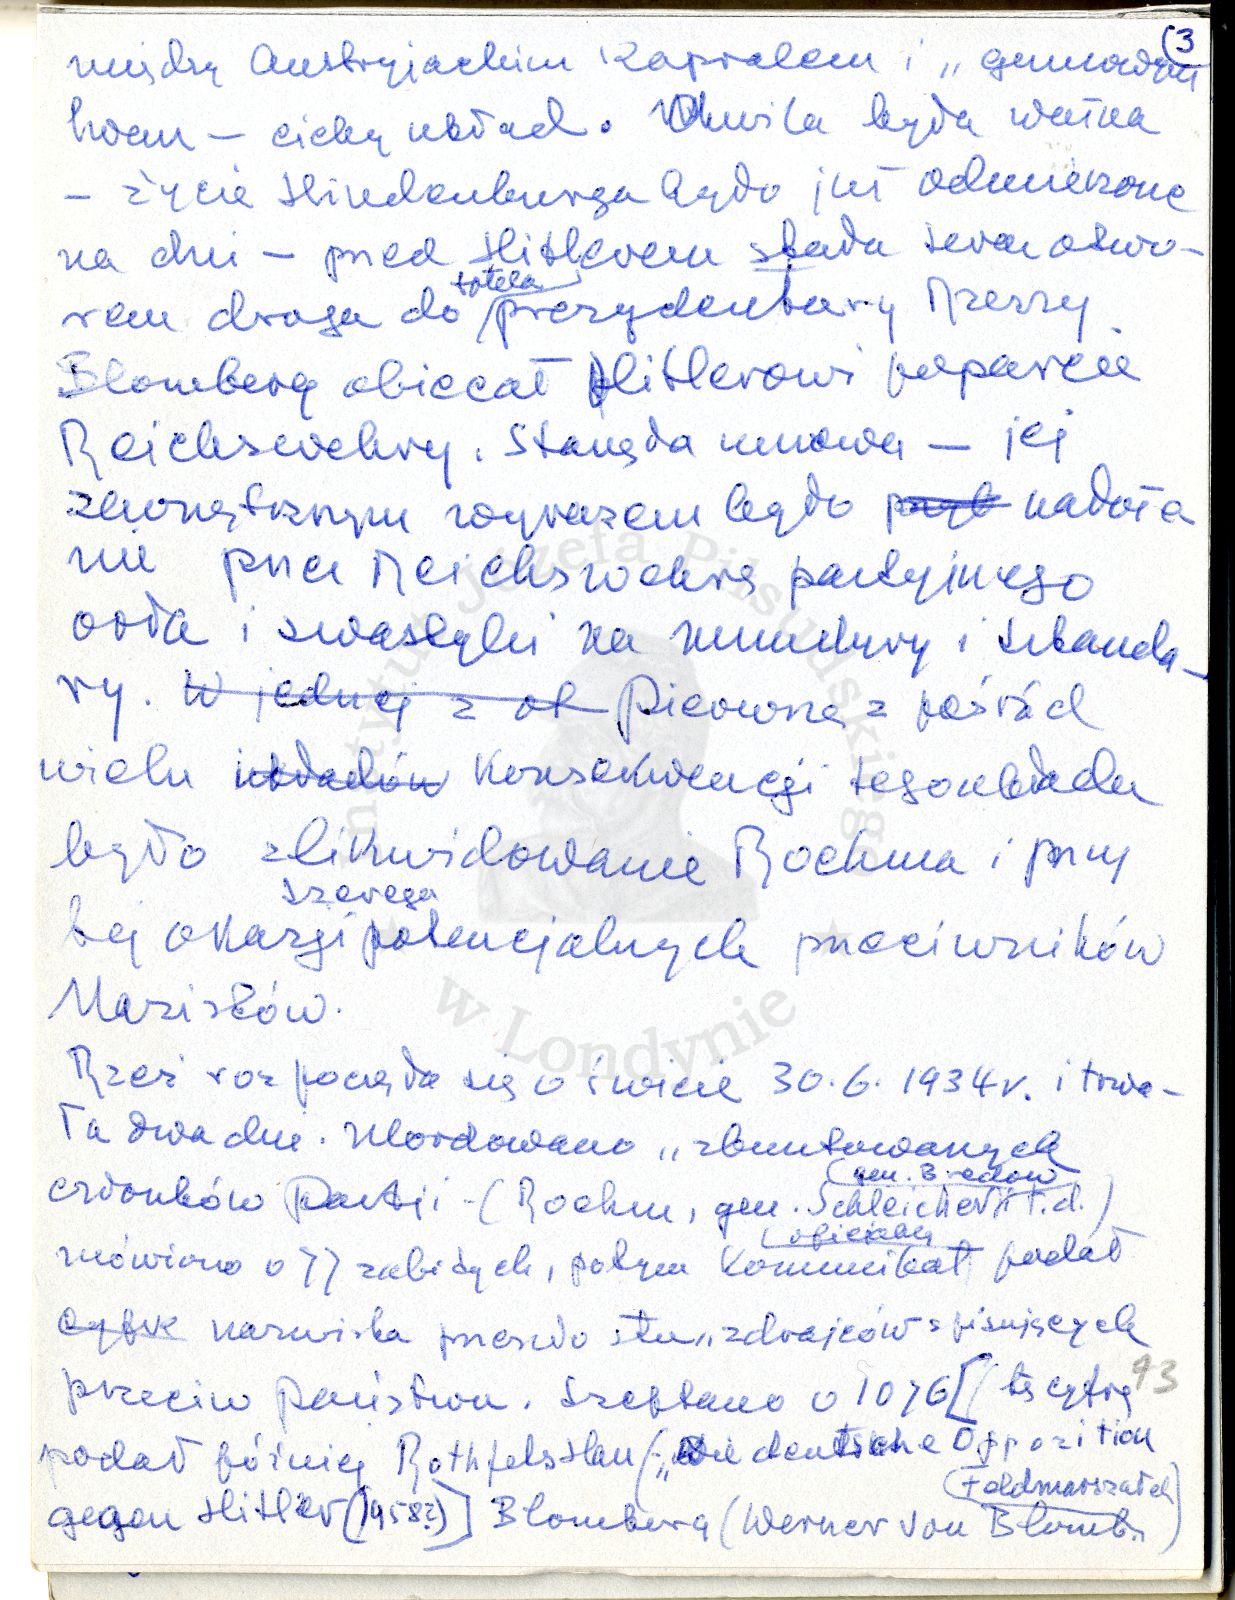 (3
między Austryjackim Kapralem i „gumowym
lwem – cichy układ. Chwila była ważna
– życie Hindenburga było już odmierzone
na dni – przed Hitlerem stała teraz otwo-
rem droga do fotela prezydentury Rzeszy.
Blomberg obiecał Hitlerowi poparcie
Reichswehry. Stanęła umowa – jej
zewnętrznym wyrazem było przyb nałoże
nie przez Reichswehrę partyjnego
orła i swastyki na mundury i sztanda-
ry. W jednej z ok Pierwszą z pośród
wielu układów konsekwencji tego układu
było zlikwidowanie Roehma i przy
tej okazji szeregu potencjalnych przeciwników
Nazistów.
Rzeź rozpoczęła się o świcie 30.6.1934r. i trwa-
ła dwa dni. Mordowano „zbuntowanych
członków Partii – (Roehm, gen. Schleicher, gen. Bredow i t.d.)
mówiono o 77 zabitych, potym oficjalny Komunikat podał
cyfrę nazwiska przeszło stu „zdrajców spisujących
przeciw państwu. Szeptano o 1076 [(tę cyfrę
93
podał później Rothfels Han („Die deutsche Opposition
gegen Hitler (1958?)] Blomberg (Werner von Blomb.. Feldmarszałek)
Instytut Józefa Piłsudskiego
w Londynie